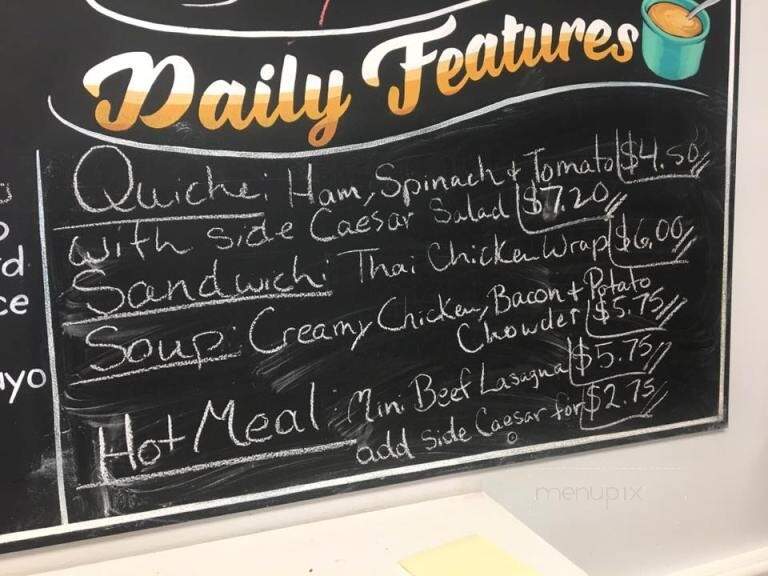 Daily Features
Quiche: Ham, Spinach + Tomato $4.50
with side Caesar Salad $7.20
Sandwich: Thai Chicken Wrap $6.00
Soup: Creamy Chicken, Bacon + Potato
Chowder $5.75
Hot Meal: Mini Beef Lasagna $5.75
add side Caesar for $2.75
menupix